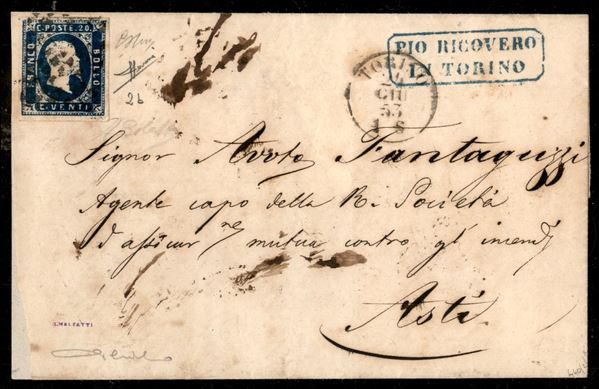 C. POSTE. 20.
FRANCO
BOLLO
C. VENTI
2b
PIO RICOVERO
IN TORINO
TORINO
GIU
53
Signor Avoto Fantaguzzi
Agente capo della R. Società
d'assicur.ne mutua contro gl'incendj
Asti
S. MALFATTI